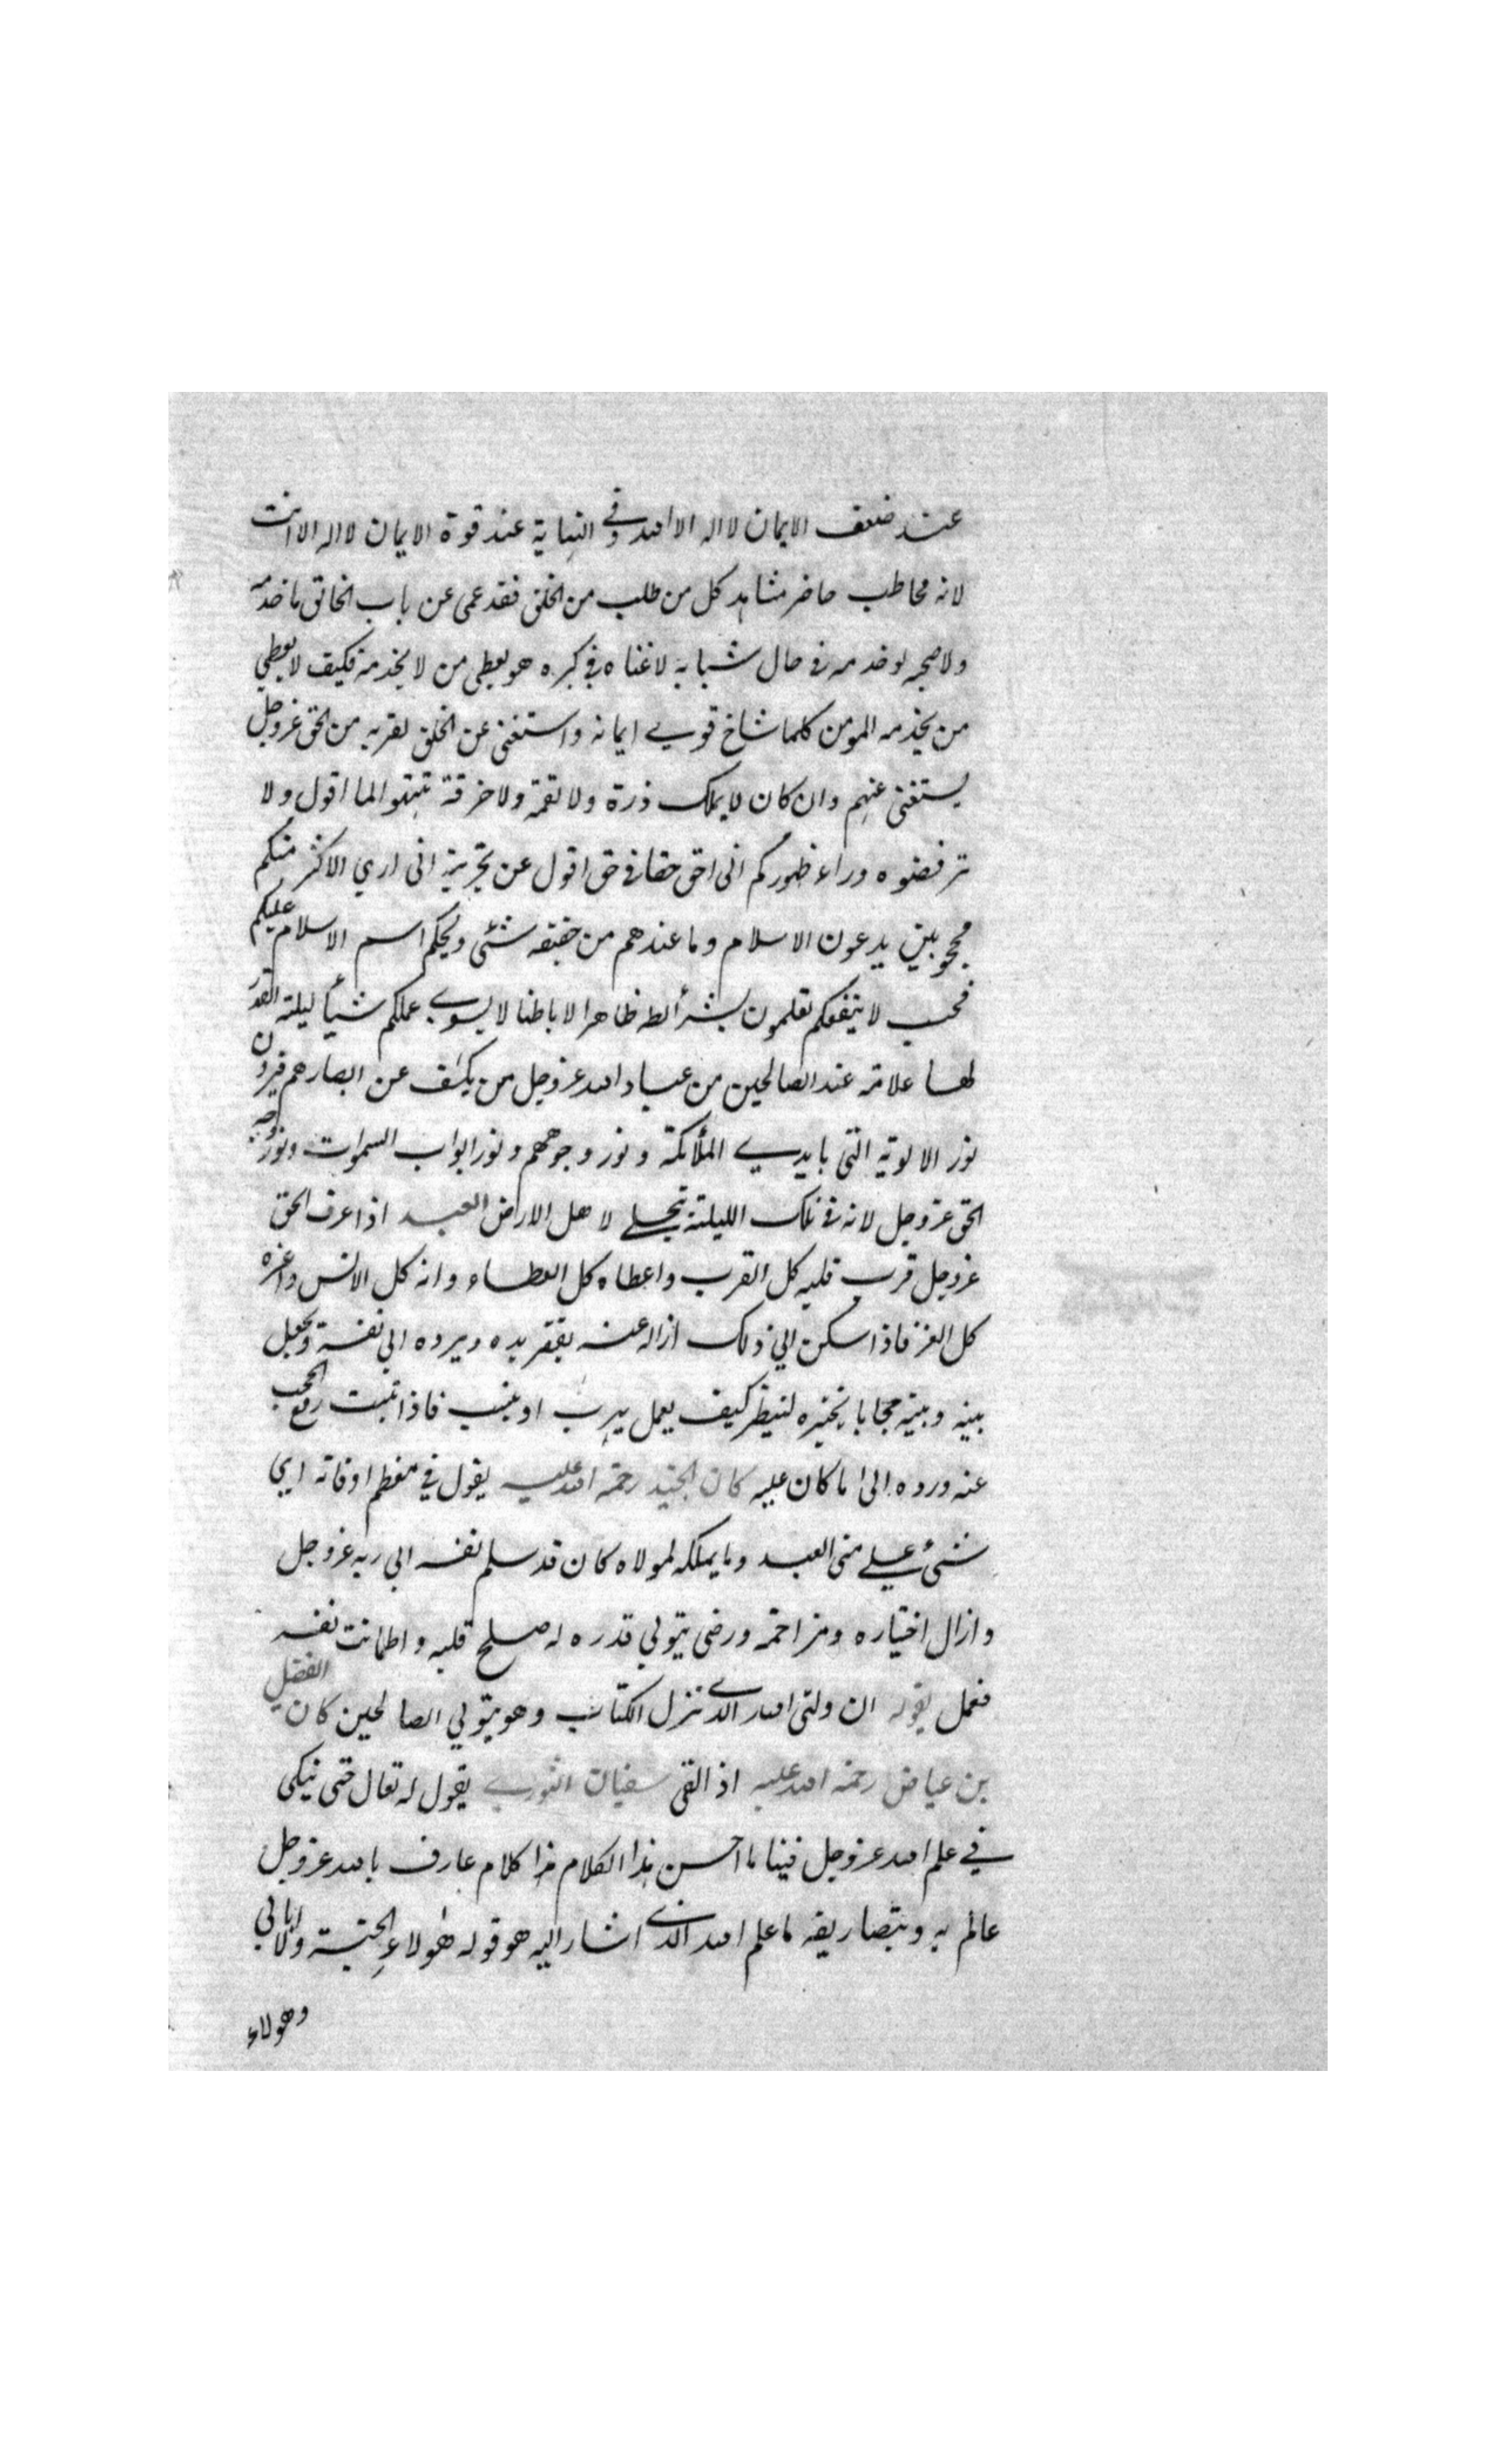 عند ضعف الايمان لا اله الا الله وفي النهاية عند قوة الايمان لا اله الا انت
لانه مخاطب حاضر مشاهد كل من طلب من الخلق فقد عمى عن باب الخالق ما خدمه
ولا صحبه لو خدمه في حال شبابه لاغناه في كبره هو يعطى من لا يخدمه فكيف لا يعطي
من يخدمه المومن كلما شاخ قوي ايمانه واستغنى عن الخلق لقربه من الحق عز وجل
يستغنى عنهم وان كان لا يملك ذرة ولا لقمة ولا خرقة تثبتوا لما اقول ولا
ترفضوه وراء ظهوركم انى احق حقا في حق اقول عن تجربة انى اري الاكثر منكم
محجوبين يدعون الاسلام وما عندهم من حقيقه شئى ويحكم اسم الاسلام عليكم
فحسب لا ينفعكم تعلمون بشرائطه ظاهرا لا باطنا لا يسوي عملكم شيأ ليلة القدر
لها علامة عند الصالحين من عباد الله عز وجل من يكشف عن ابصارهم فيرون
نور الالوية التى بايدي الملائكة و نور وجوههم و نور ابواب السموات ونور وجه
الحق عز وجل لانه في تلك الليلة يتجلي لاهل الارض العبد اذا عرف الحق
عز وجل قرب قلبه كل القرب واعطاه كل العطاء وانه كل الانس واعزه
كل العز فاذا سكن الي ذلك ازاله عنه يفقر يده ويرده الى نفسه ويجعل
بينه وبينه حجابا يختبره لينظر كيف يعمل يهرب او يثبت فاذا ثبت رفع الحجب
عنه ورده الى ما كان عليه كان الجنيد رحمة الله عليه يقول في معظم اوقاته ايي
شئ علي منى العبد وما يملكه لمولاه كان قد سلم نفسه الى ربه عز وجل
وازال اختياره ومزاحمة ورضى بتولي قدره له صلح قلبه واطمانت نفسه
فعمل بقوله ان ولتى الله الذي نزل الكتاب وهو يتولي الصالحين كان الفضيل
بن عياض رحمة الله عليه اذ القى سفيان الثوري يقول له تعال حتى نبكى
في علم الله عز وجل فينا ما احسن هذا الكلام هذا كلام عارف بالله عز وجل
عالم به وبتصاريفه ما علم الله الذي اشار اليه هو قوله هولاء الجنة ولا ابالي
وهولاء